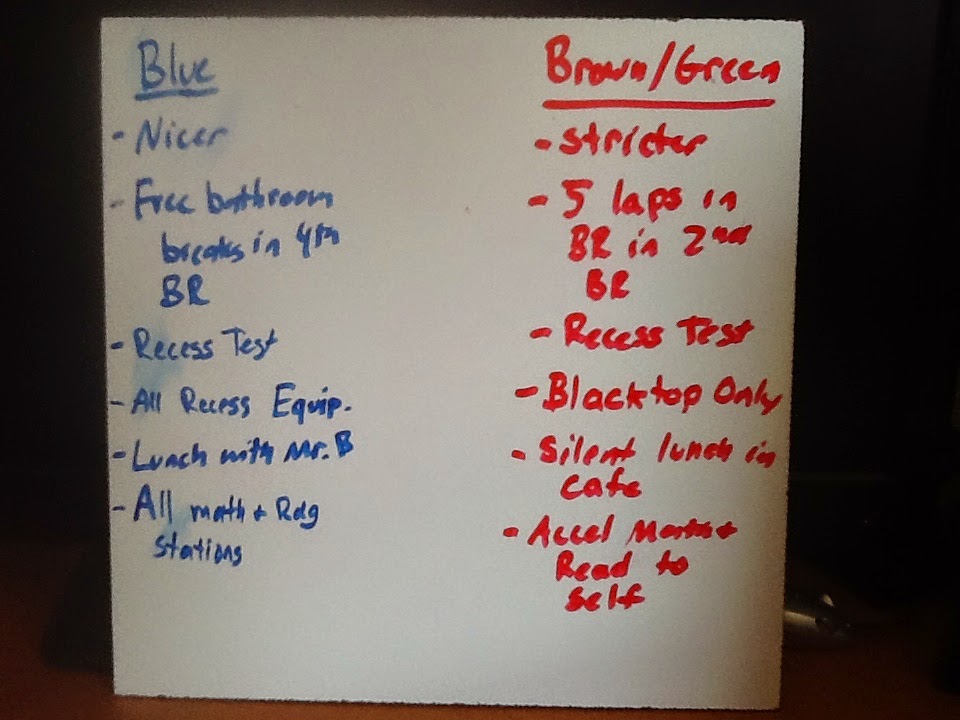 Blue
- Nicer
- Free bathroom
breaks in 4th
BR
- Recess Test
- All Recess Equip.
- Lunch with Mr. B
- All math + Rdg
stations
Brown/Green
- stricter
- 5 laps in
BR in 2nd
BR
- Recess Test
- Blacktop Only
- Silent lunch in
cafe
- Accel Math +
Read to
Self